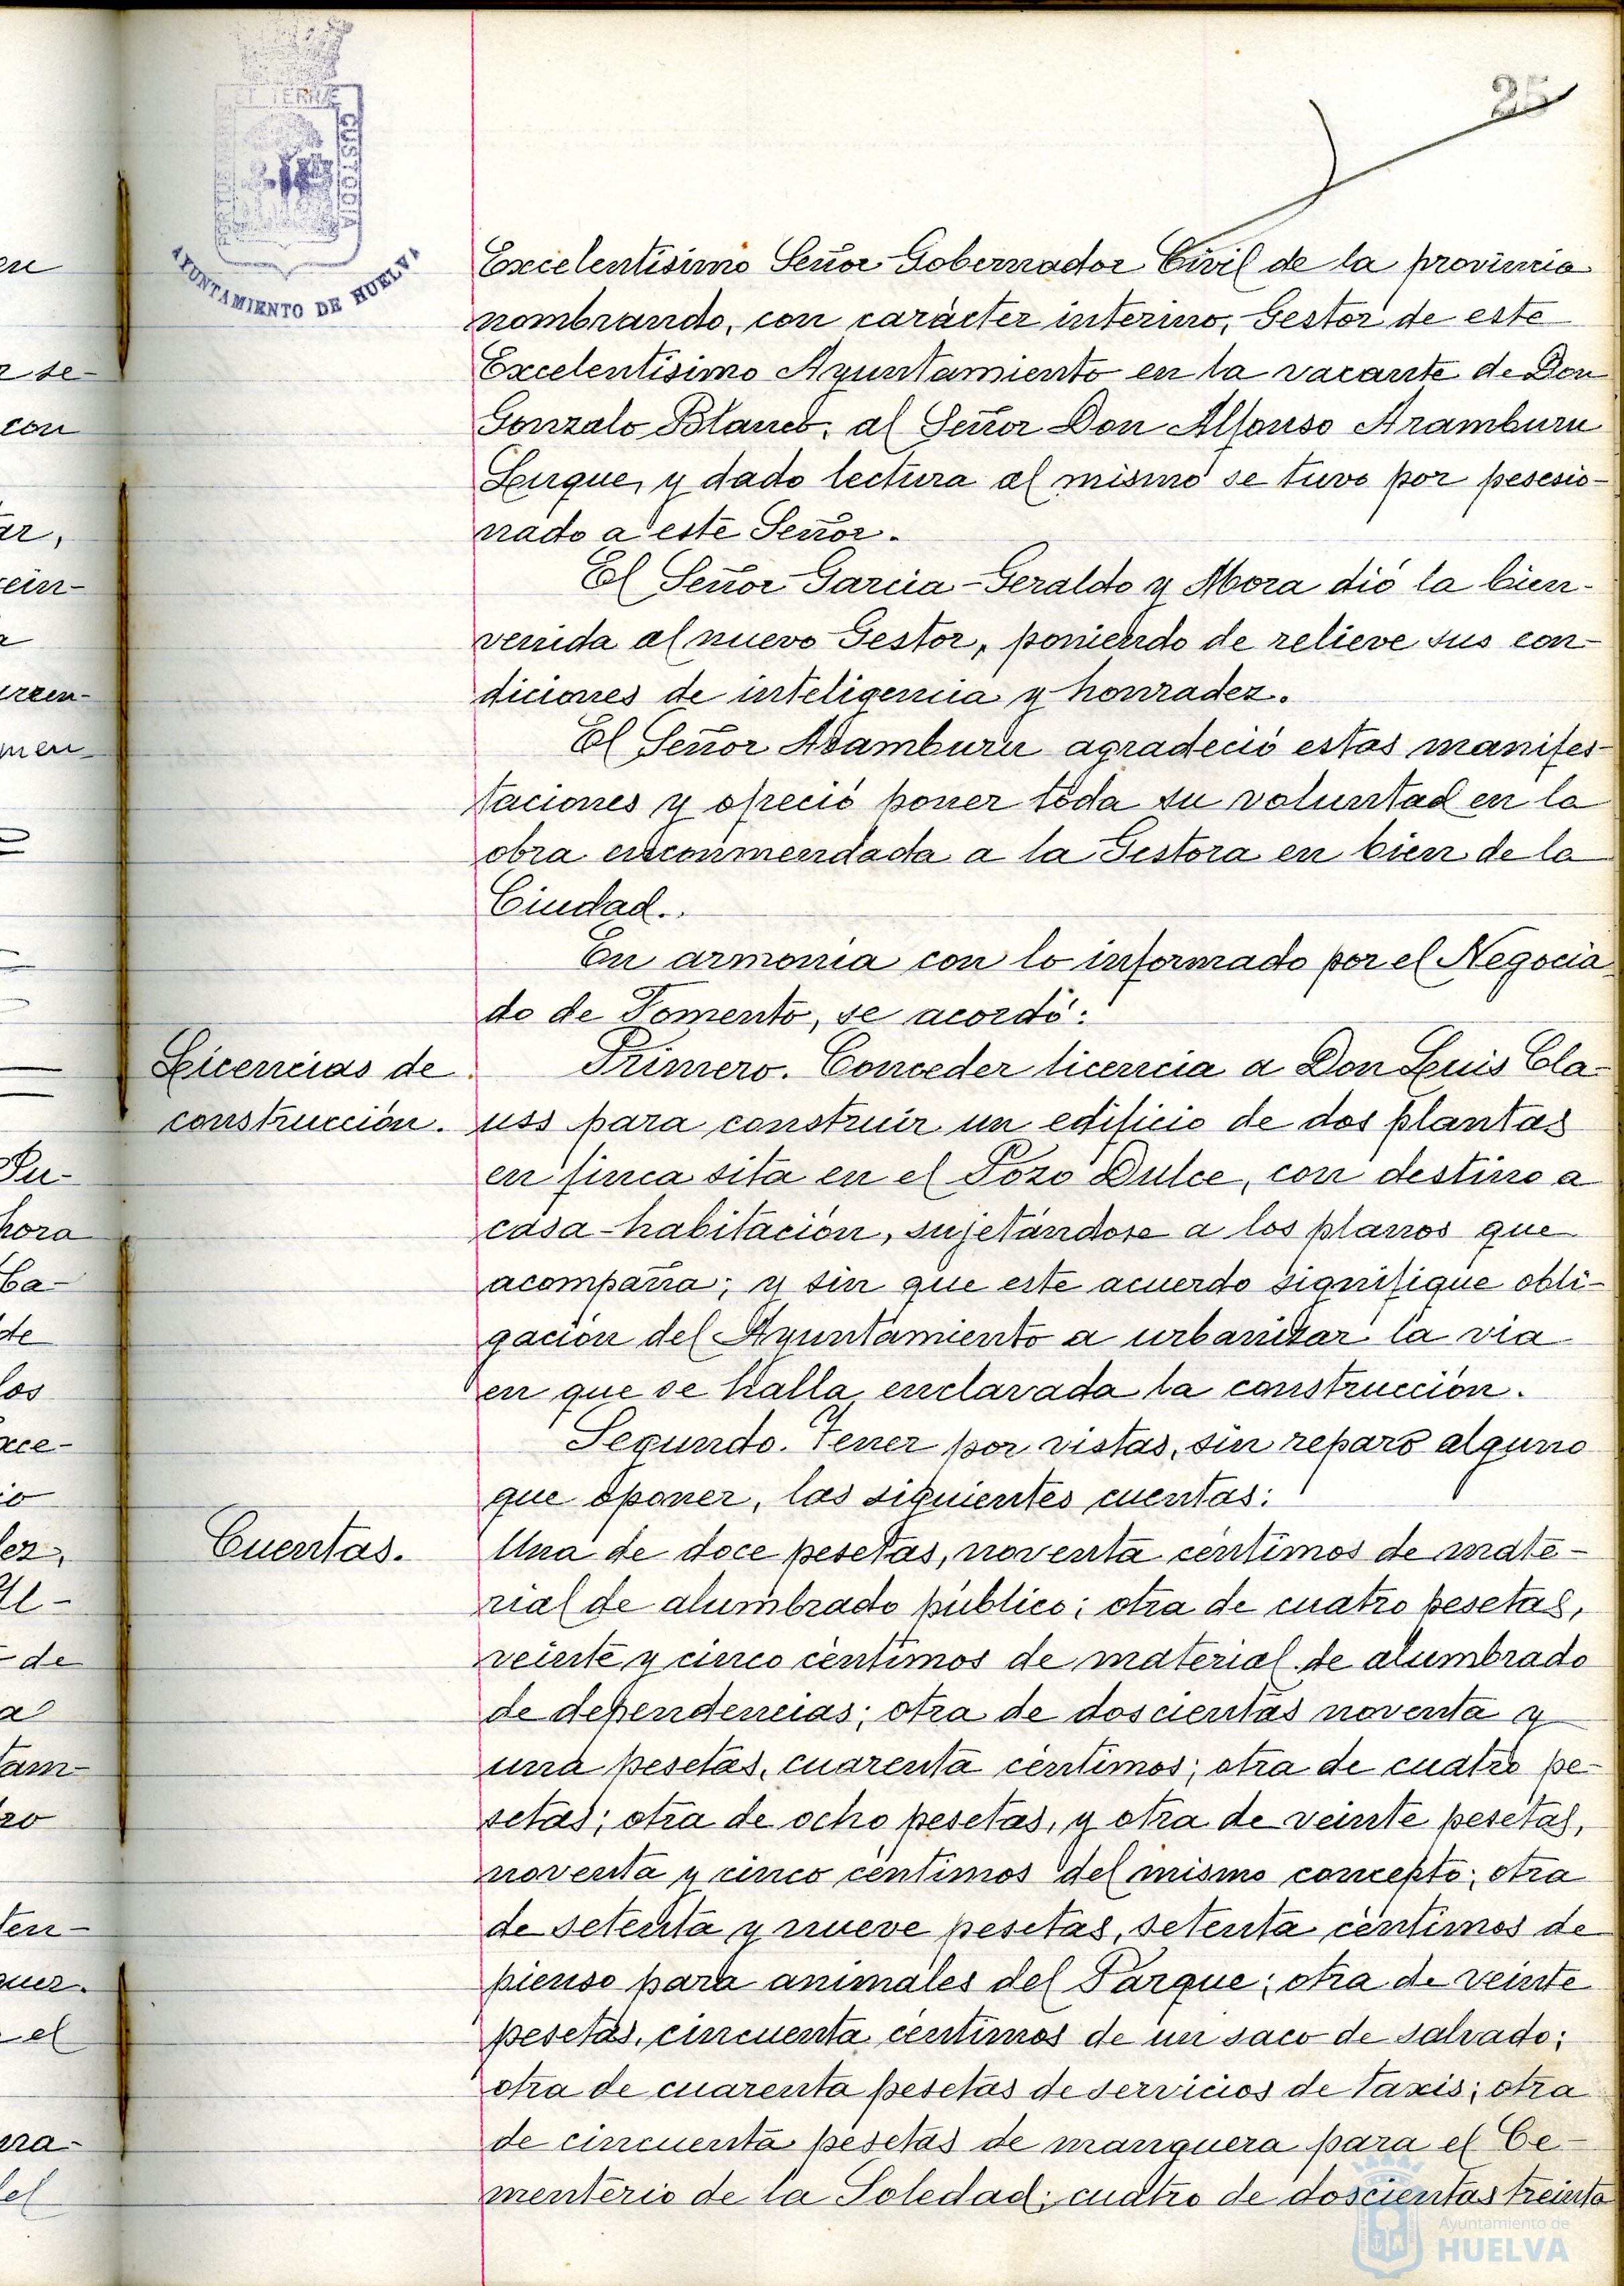 25
TERRÆ
CUSTODIA
AYUNTAMIENTO DE HUELVA
Excelentísimo Señor Gobernador Civil de la provincia
nombrando, con carácter interino, Gestor de este
Excelentísimo Ayuntamiento en la vacante de Don
Gonzalo Blanco, al Señor Don Alfonso Aramburu
Luque, y dado lectura al mismo se tuvo por pesesio-
nado a este Señor.
El Señor Garcia-Geraldo y Mora dió la bien-
venida al nuevo Gestor, poniendo de relieve sus con-
diciones de inteligencia y honradez.
El Señor Aramburu agradeció estas manifes-
taciones y ofreció poner toda su voluntad en la
obra encommendada a la Gestora en bien de la
Ciudad.
En armonia con lo informado por el Negocia
do de Fomento, se acordó:
Licencias de
construcción.
Primero. Conceder licencia a Don Luis Cla-
uss para construir un edificio de dos plantas
en finca sita en el Pozo Dulce, con destino a
casa-habitación, sujetándose a los planos que
acompaña; y sin que este acuerdo signifique obli-
gación del Ayuntamiento a urbanizar la via
en que se halla enclavada la construcción.
Segundo. Tener por vistas, sin reparo alguno
que oponer, las siguientes cuentas:
Cuentas.
Una de doce pesetas, noventa céntimos de mate-
rial de alumbrado público; otra de cuatro pesetas,
veinte y cinco céntimos de material de alumbrado
de dependencias; otra de doscientas noventa y
una pesetas, cuarenta céntimos; otra de cuatro pe-
setas; otra de ocho pesetas, y otra de veinte pesetas,
noventa y cinco céntimos del mismo concepto; otra
de setenta y nueve pesetas, setenta céntimos de
pienso para animales del Parque; otra de veinte
pesetas, cincuenta céntimos de un saco de salvado;
otra de cuarenta pesetas de servicios de taxis; otra
de cincuenta pesetas de manguera para el Ce-
menterio de la Soledad; cuatro de doscientas treinta
Ayuntamiento de
HUELVA